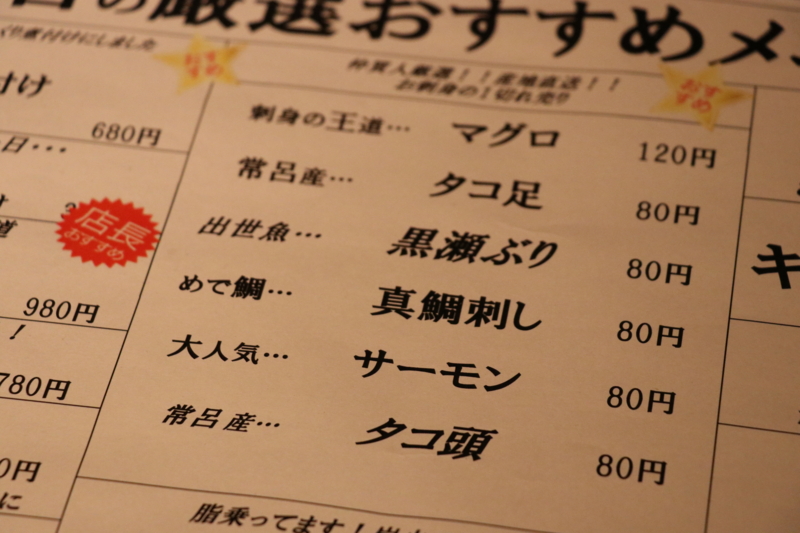 の厳選おすすめメ
付けにしました
おすすめ
仲買人厳選！！産地直送！！
お刺身の１切れ売り
おすすめ
付け
680円
日・・・
店長
おすすめ
980円
！
780円
0円
に
刺身の王道… マグロ 120円
常呂産… タコ足 80円
出世魚… 黒瀬ぶり 80円
めで鯛… 真鯛刺し 80円
大人気… サーモン 80円
常呂産… タコ頭 80円
脂乗ってます！
キ